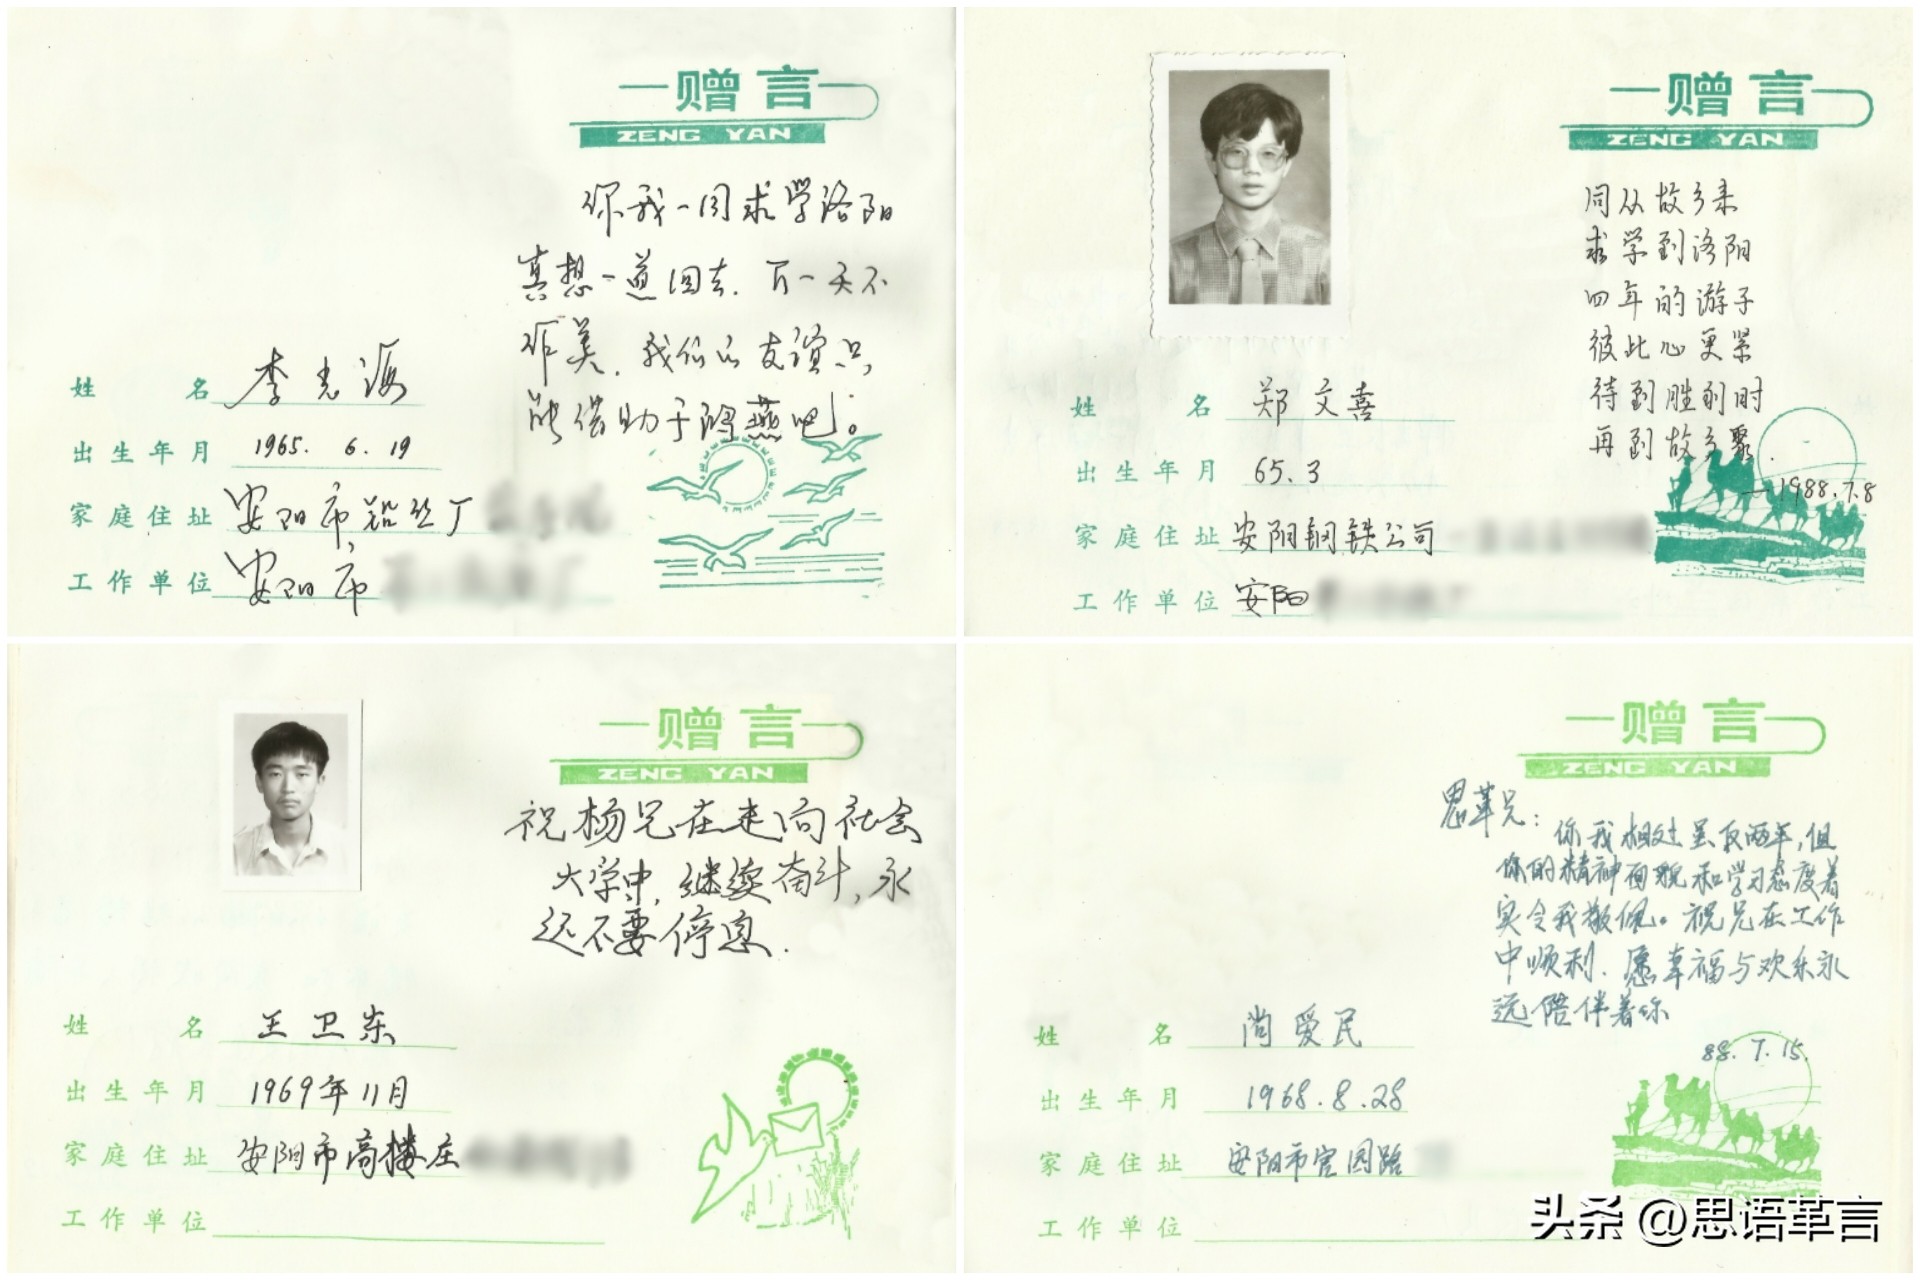 赠言
ZENG YAN
你我一同求学洛阳
真想一道回去.百一天不
作美.我们的友谊只
能借助于鸿燕吧。
姓名 李光海
出生年月 1965. 6. 19
家庭住址 安阳市铅丝厂
工作单位 安阳市
赠言
ZENG YAN
同从故乡来
求学到洛阳
四年的游子
彼此心更紧
待到胜利时
再到故乡聚.
—1988.7.8
姓名 郑文喜
出生年月 65.3
家庭住址 安阳钢铁公司
工作单位 安阳
赠言
ZENG YAN
祝杨兄在走向社会
大学中,继续奋斗,永
远不要停息.
姓名 王卫东
出生年月 1969年11月
家庭住址 安阳市高楼庄
工作单位
赠言
ZENG YAN
思革兄:
你我相处虽只两年,但
你的精神面貌和学习态度着
实令我敬佩。祝兄在工作
中顺利.愿幸福与欢乐永
远陪伴着你
88.7.15.
姓名 尚爱民
出生年月 1968.8.28
家庭住址 安阳市官园路
工作单位
头条 @思语革言